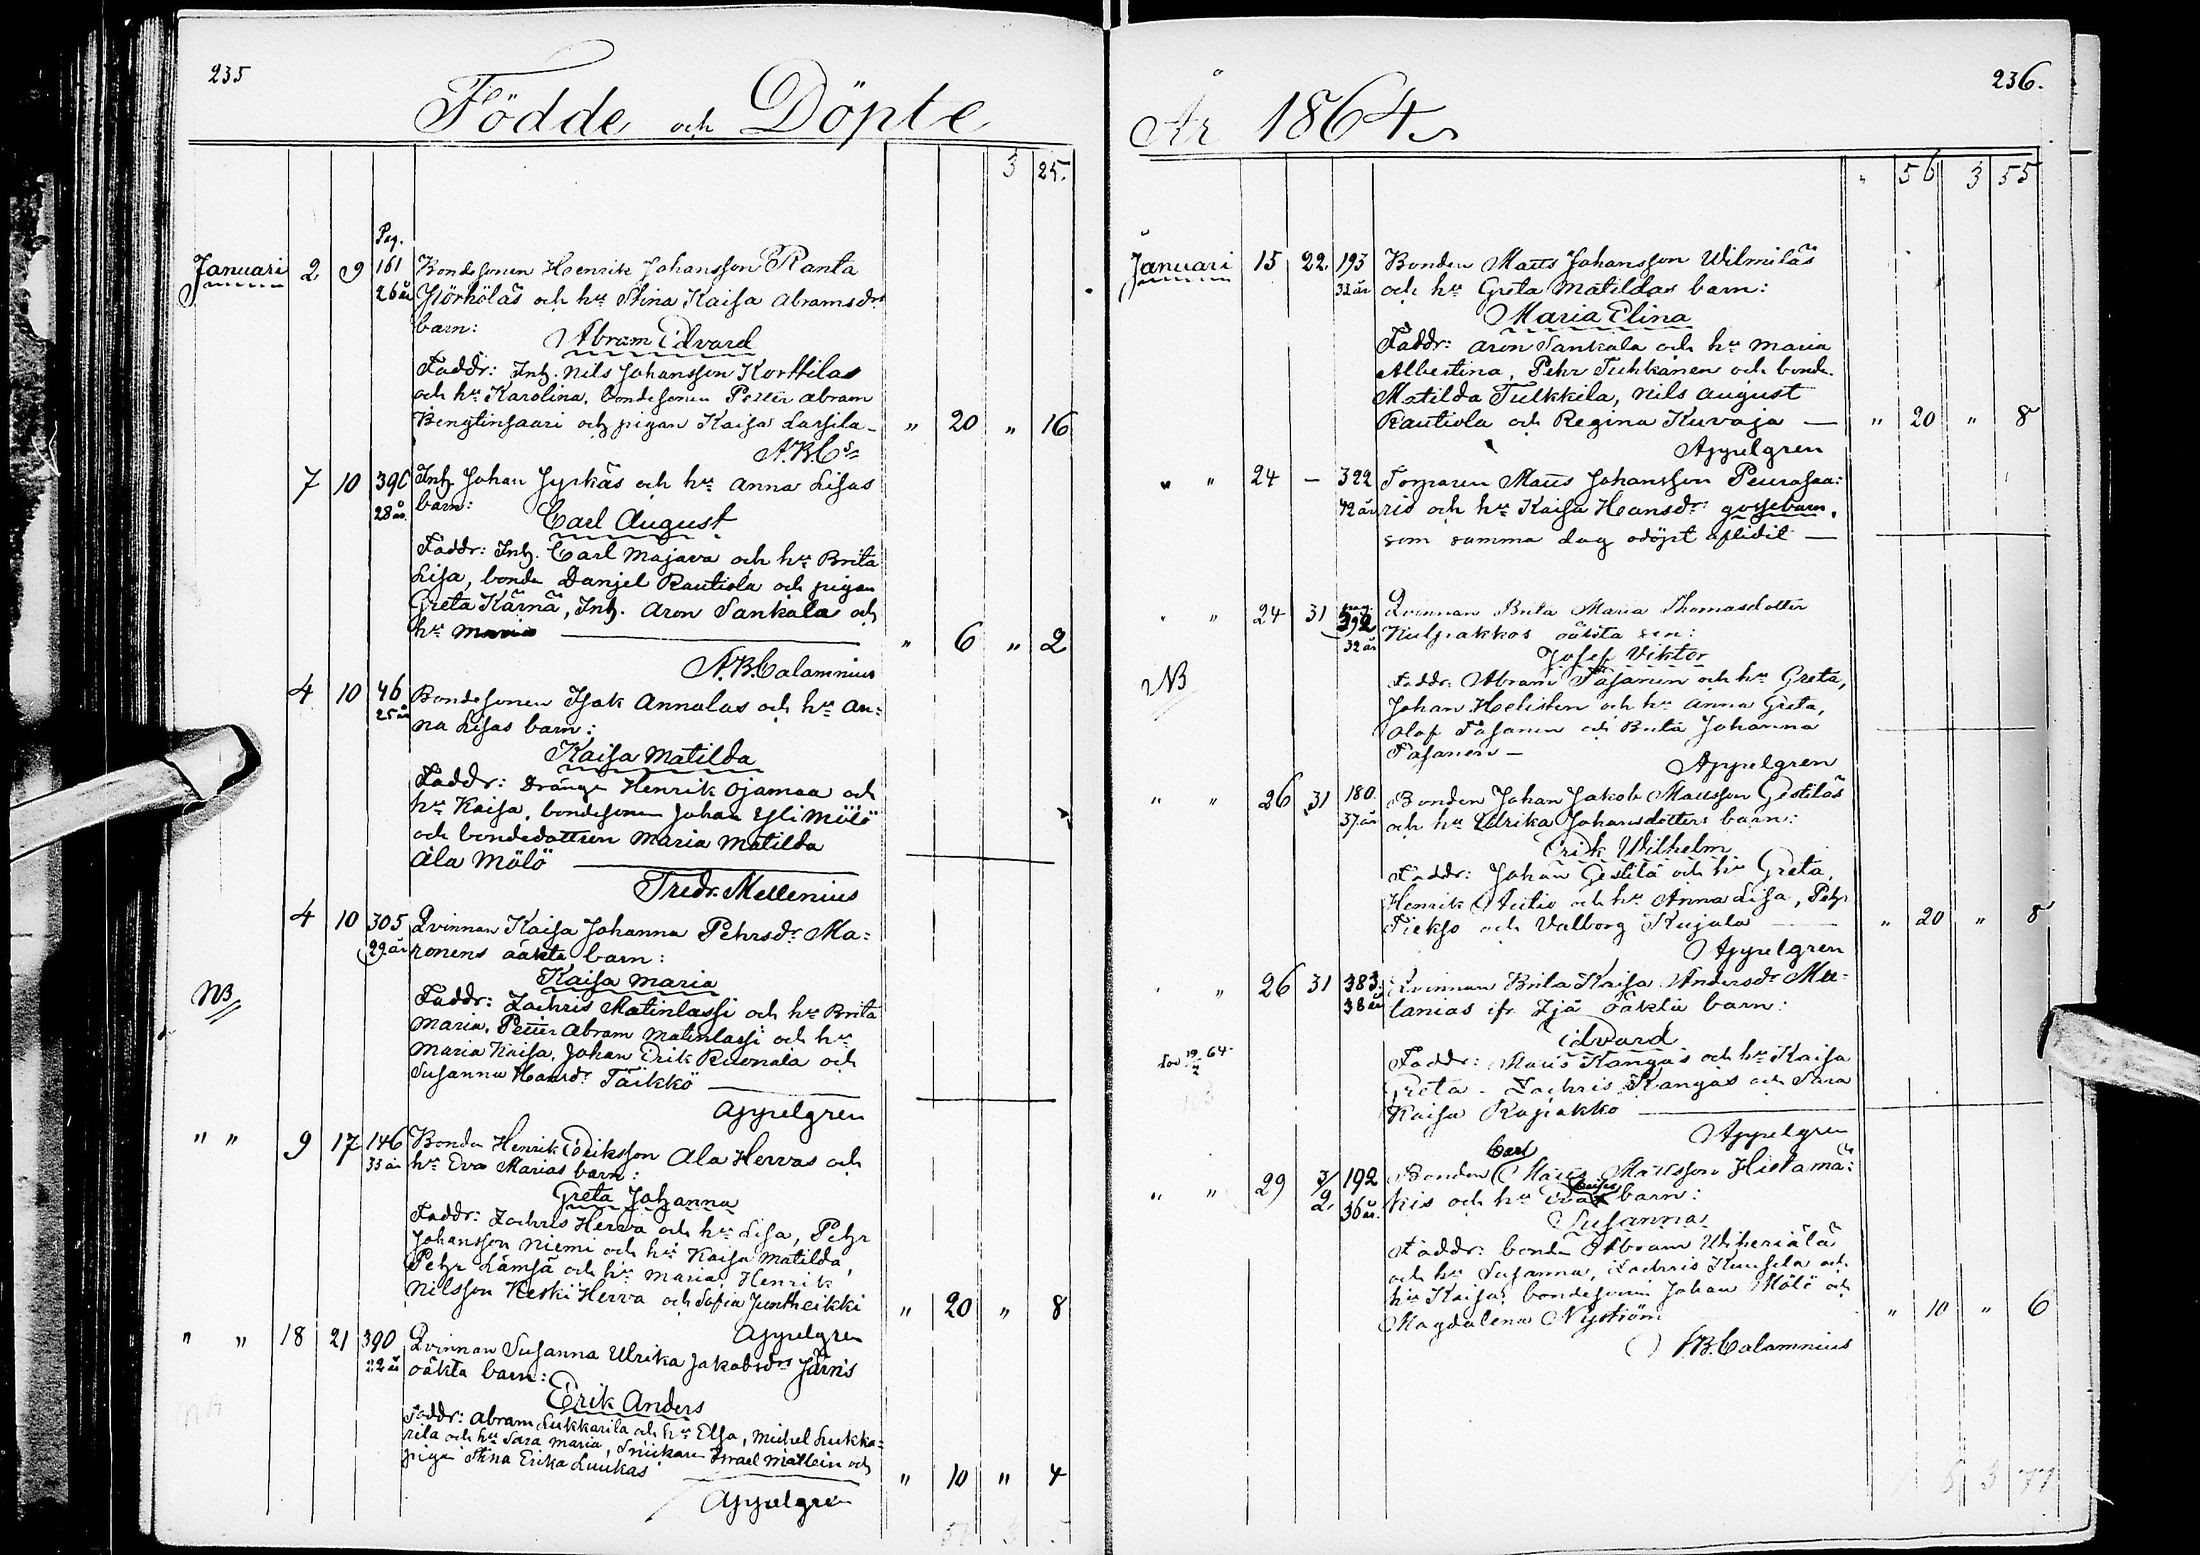 235
Födde och Döpte
3 25.
Pag.
Januari 2 9 161 Bondesonen Henrik Johansson Ranta
26 år Yliörhöläs och hu Stina Kaisa Abramsdrs
barn:
Abram Edvard
Faddr: Inh. Nils Johansson Korttilas
och hu Karolina, bondesonen Petter Abram
Bengtinsaari och pigan Kaisa Lassila - " 20 " 16
A.B.Cs
7 10 390 Inh. Johan Jyrkäs och hu Anna Lisas
28 år barn:
Carl August
Faddr: Inh. Carl Majava och hu Brita
Lisa, bonden Danjel Rautiola och pigan
Greta Kärnä, Inh. Aron Sankala och
hu Maria " 6 " 2
A.B.Calamnius
4 10 46 Bondesonen Isak Annalas och hu An=
25 år na Lisas barn:
Kaisa Matilda
Faddr: Drängen Henrik Ojamaa och
hu Kaisa, bondesonen Johan Yli Mölö
och bondedottren Maria Matilda
Ala Mölö
Fredr. Mellenius
4 10 305 Qvinnan Kaisa Johanna Pehrsdr Ma=
29 år ronens oäkta barn:
Kaisa Maria
NB Faddr: Zachris Matinlassi och hu Brita
Maria, Petter Abram Matinlassi och hu
Maria Kaisa, Johan Erik Ruonala och
Susanna Hansdr Täikkö
Appelgren
" " 9 17 146 Bonden Henrik Eriksson Ala Hervas och
33 år hu Eva Marias barn:
Greta Johanna
Faddr: Zachris Herva och hu Lisa, Pehr
Johansson Niemi och hu Kaisa Matilda,
Pehr Lämsä och hu Maria, Henrik
Nilsson Keski Herva och Sofia Juntheikki " 20 " 8
Appelgren
" " 18 21 390 Qvinnan Susanna Ulrika Jakobsdrs Järn's
22 år oäkta barn:
Erik Anders
Faddr: Abram Lukkarila och hu Elsa, Michel Lukka=
rila och hu Sara Maria, Snickaren Israel Matlein och
pigan Stina Erika Luukas " 10 " 4
Appelgren
236.
År 1864
" 56 3 55
Januari 15 22 193 Bonden Matts Johansson Wilmiläs
33 år och hu Greta Matildas barn:
Maria Elina
Faddr: Aron Sankala och hu Maria
Albertina, Pehr Tuhkanen och bonde.
Matilda Tulkkila, Nils August
Rautiola och Regina Kuvaja — " 20 " 8
Appelgren
" " 24 — 322 Torparen Matts Johansson Peurasaa=
42 år ris och hu Kaisa Hansdrs gossebarn,
som samma dag odöpt aflidit —
" " 24 31 pag. 392 Qvinnan Brita Maria Thomasdotter
32 år Kulpakkos oäkta son:
Josef Viktor
NB Faddr: Abram Fasanen och hu Greta,
Johan Helisten och hu Anna Greta,
Olof Fasanen och Brita Johanna
Fasanen —
Appelgren
" " 26 31 180 Bonden Johan Jakob Mattsson Gestiläs
37 år och hu Ulrika Johansdotters barn:
Erik Wilhelm
Faddr: Johan Gestilä och hu Greta,
Henrik Autio och hu Anna Lisa, Pehr
Tiekso och Valborg Kujala " 20 " 8
Appelgren
" " 26 31 383 Qvinnan Brita Kaisa Andersdr Me=
38 år lanias ifr. Ijå oäkta barn:
Edvard
Faddr: Matts Kangas och hu Kaisa
Greta - Zachris Kangas och Sara
Kaisa Rapakko
Appelgren
" " 29 3/2 192 Bonden Carl Matts Mattsson Hietamä=
36 år. kis och hu Kaisas barn:
Susanna
Faddr: bonden Abram Uiheriälä
och hu Susanna, Zachris Kuusela och
hu Kaisa, bondesonen Johan Mölö och
Magdalena Nyström " 10 " 6
A.B.Calamnius
3 77